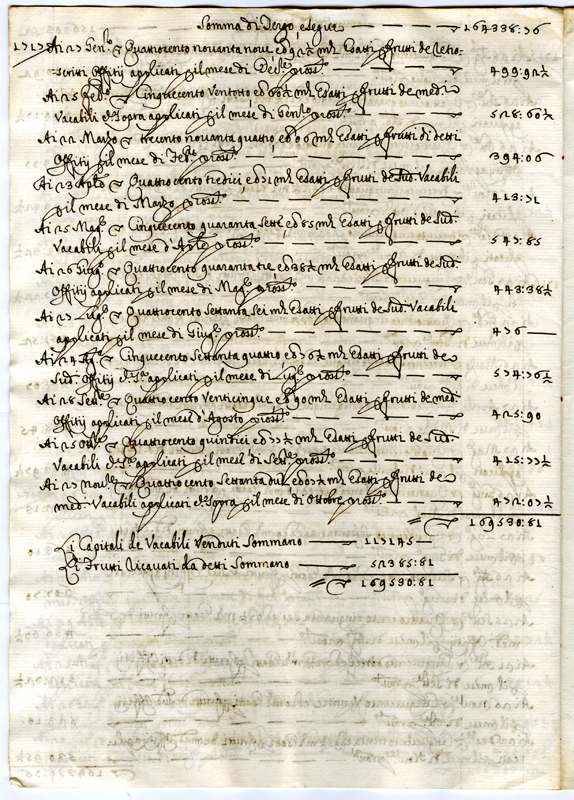 Somma di Tergo e segue — 164338:76
1717 Ai 27 Genn.o ∇ Quattrocento novanta nove, ed 92½ mta Esatti p frutti de retro-
scritti Offitij applicati p il mese di Dec.re pross.o — 499:92½
Ai 25 Feb.o ∇ Cinquecento Ventotto ed 60½ mta Esatti p frutti de med.i
Vacabili d. Sopra applicati p il mese di Gen.o pross.o — 528:60½
Ai 22 Marzo ∇ trecento novanta quattro, ed 06 mta Esatti p frutti di detti
Offitij p il mese di Feb.o pross.o — 394:06
Ai 23 Ap.le ∇ Quattrocento tredici, ed 71 mta Esatti p frutti de Sud. Vacabili
p il mese di Marzo pross.o — 413:71
Ai 25 Mag.o ∇ Cinquecento quaranta sette, ed 85 mta Esatti p frutti de Sud.
Vacabili p il mese d'Aprle pross.o — 547:85
Ai 26 Giug.o ∇ Quattrocento quaranta tre ed 38½ mta Esatti p frutti de Sud.
Offitij applicati p il mese di Mag.o pross.o — 443:38½
Ai 27 Lug.o ∇ Quattrocento settanta sei mta Esatti p frutti de Sud. Vacabili
applicati p il mese di Giug.o pross.o — 476 —
Ai 24 Ag.o ∇ Cinquecento Settanta quattro ed 76½ mta Esatti p frutti de
Sud. Offitij d. S.a applicati p il mese di Lug.o pross.o — 574:76½
Ai 28 Sett.e ∇ Quattrocento Venticinque ed 90 mta Esatti p frutti de med.
Offitij applicati p il mese d'Agosto pross.o — 425:90
Ai 25 Ott.e ∇ Quattrocento quindici ed 77½ mta Esatti p frutti de Sud.
Vacabili d. S.a applicati p il mese di Sett.e pross.o — 415:77½
Ai 27 nov.e ∇ Quattrocento settanta due ed 07½ mta Esatti p frutti de
med. Vacabili applicati d. Sopra p il mese di Ottobre pross.o — 472:07½
∇ 169530:81
Li Capitali de Vacabili Venduti Sommano — 117145 —
Li Frutti Ricavati da detti Sommano — 52385:81
∇ 169530:81